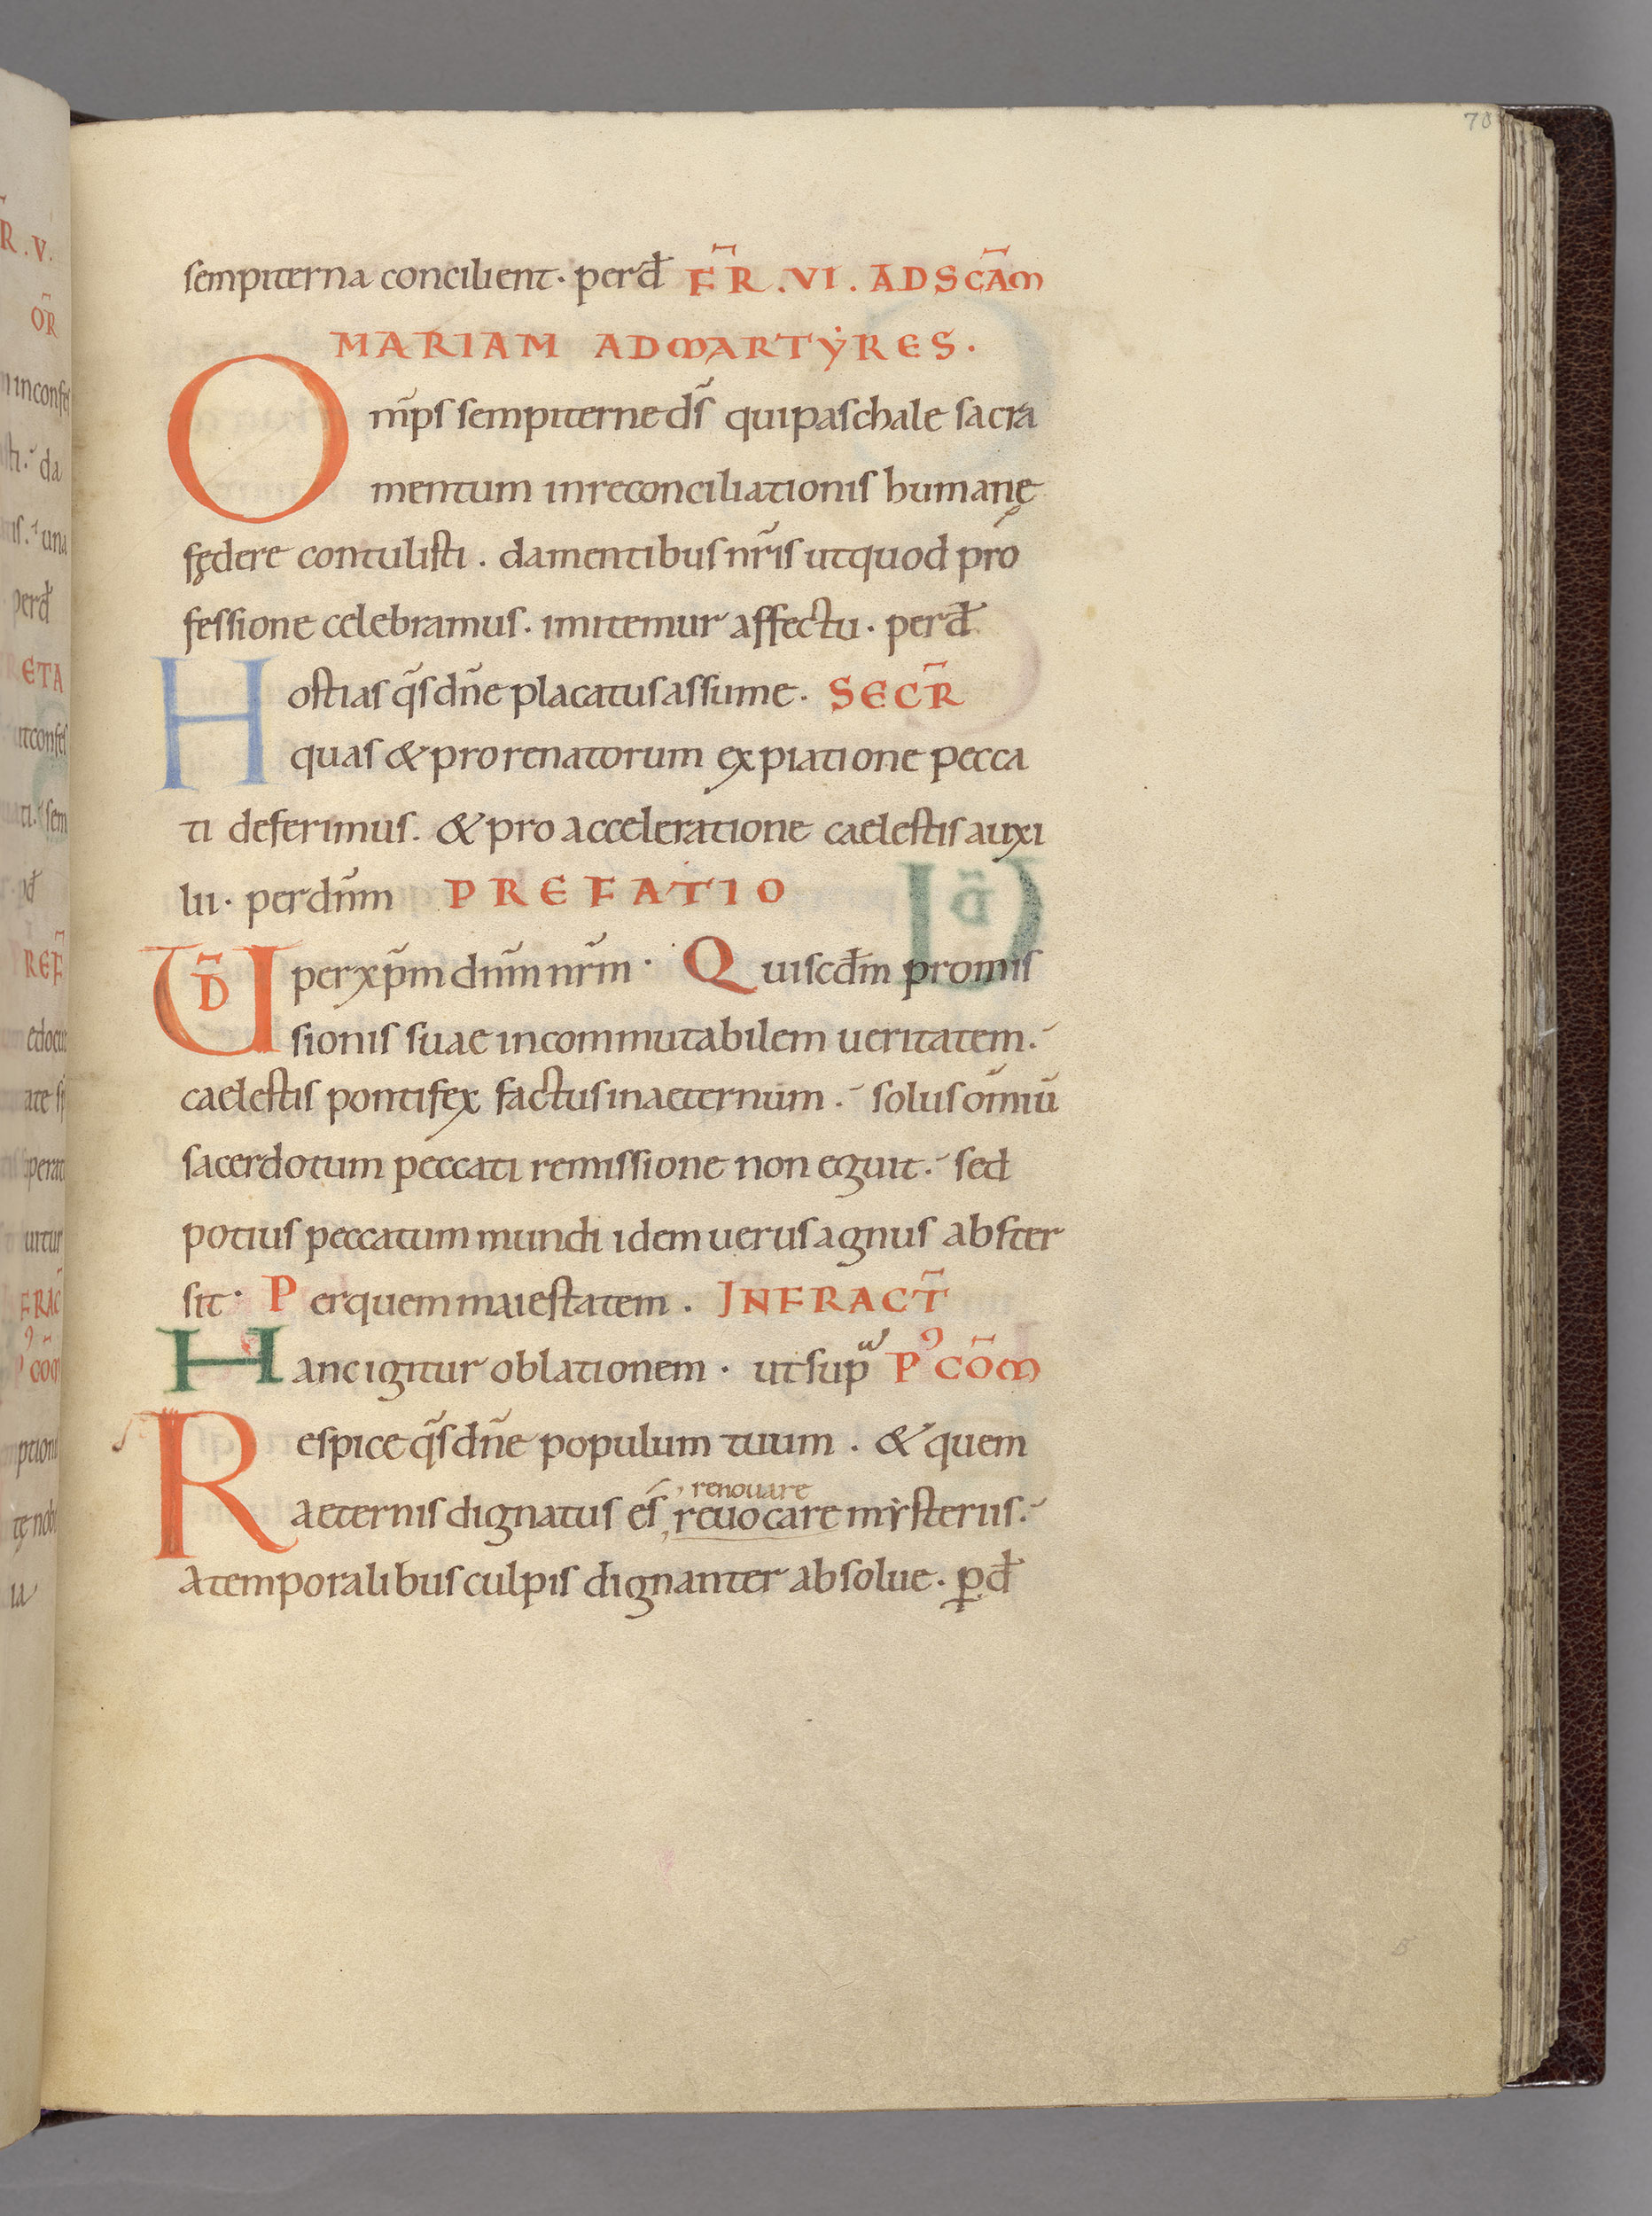 70
sempiterna concilient · perđ F̄R̄ . VI . AD SC̄AM
MARIAM AD MARTẎRES .
Om̄ps sempiterne ds̄ qui paschale sacra
mentum in reconciliationis humanę
fędere contulisti . da mentibus nr̄is ut quod pro
fessione celebramus . imitemur affectu . perđ
Hostias q̄s dn̄e placatus assume . SECR̄
quas & pro renatorum expiatione pecca
ti deferimus . & pro acceleratione caelestis auxi
lii · per dn̄m PREFATIO
UD̄ per xp̄m dn̄m nr̄m · Qui scđm promis
sionis suae incommutabilem ueritatem .
caelestis pontifex factus in aeternum . solus om̄iū
sacerdotum peccati remissione non eguit . sed
potius peccatum mundi idem uerus agnus abster
sit · Per quem maiestatem . INFRACT̄
Hanc igitur oblationem . ut sup̄ P⁹ CŌM
Respice q̄s dn̄e populum tuum . & quem
renouare
aeternis dignatus es̄ reuocare mẏsteriis .
a temporalibus culpis dignanter absolue . ꝑđ